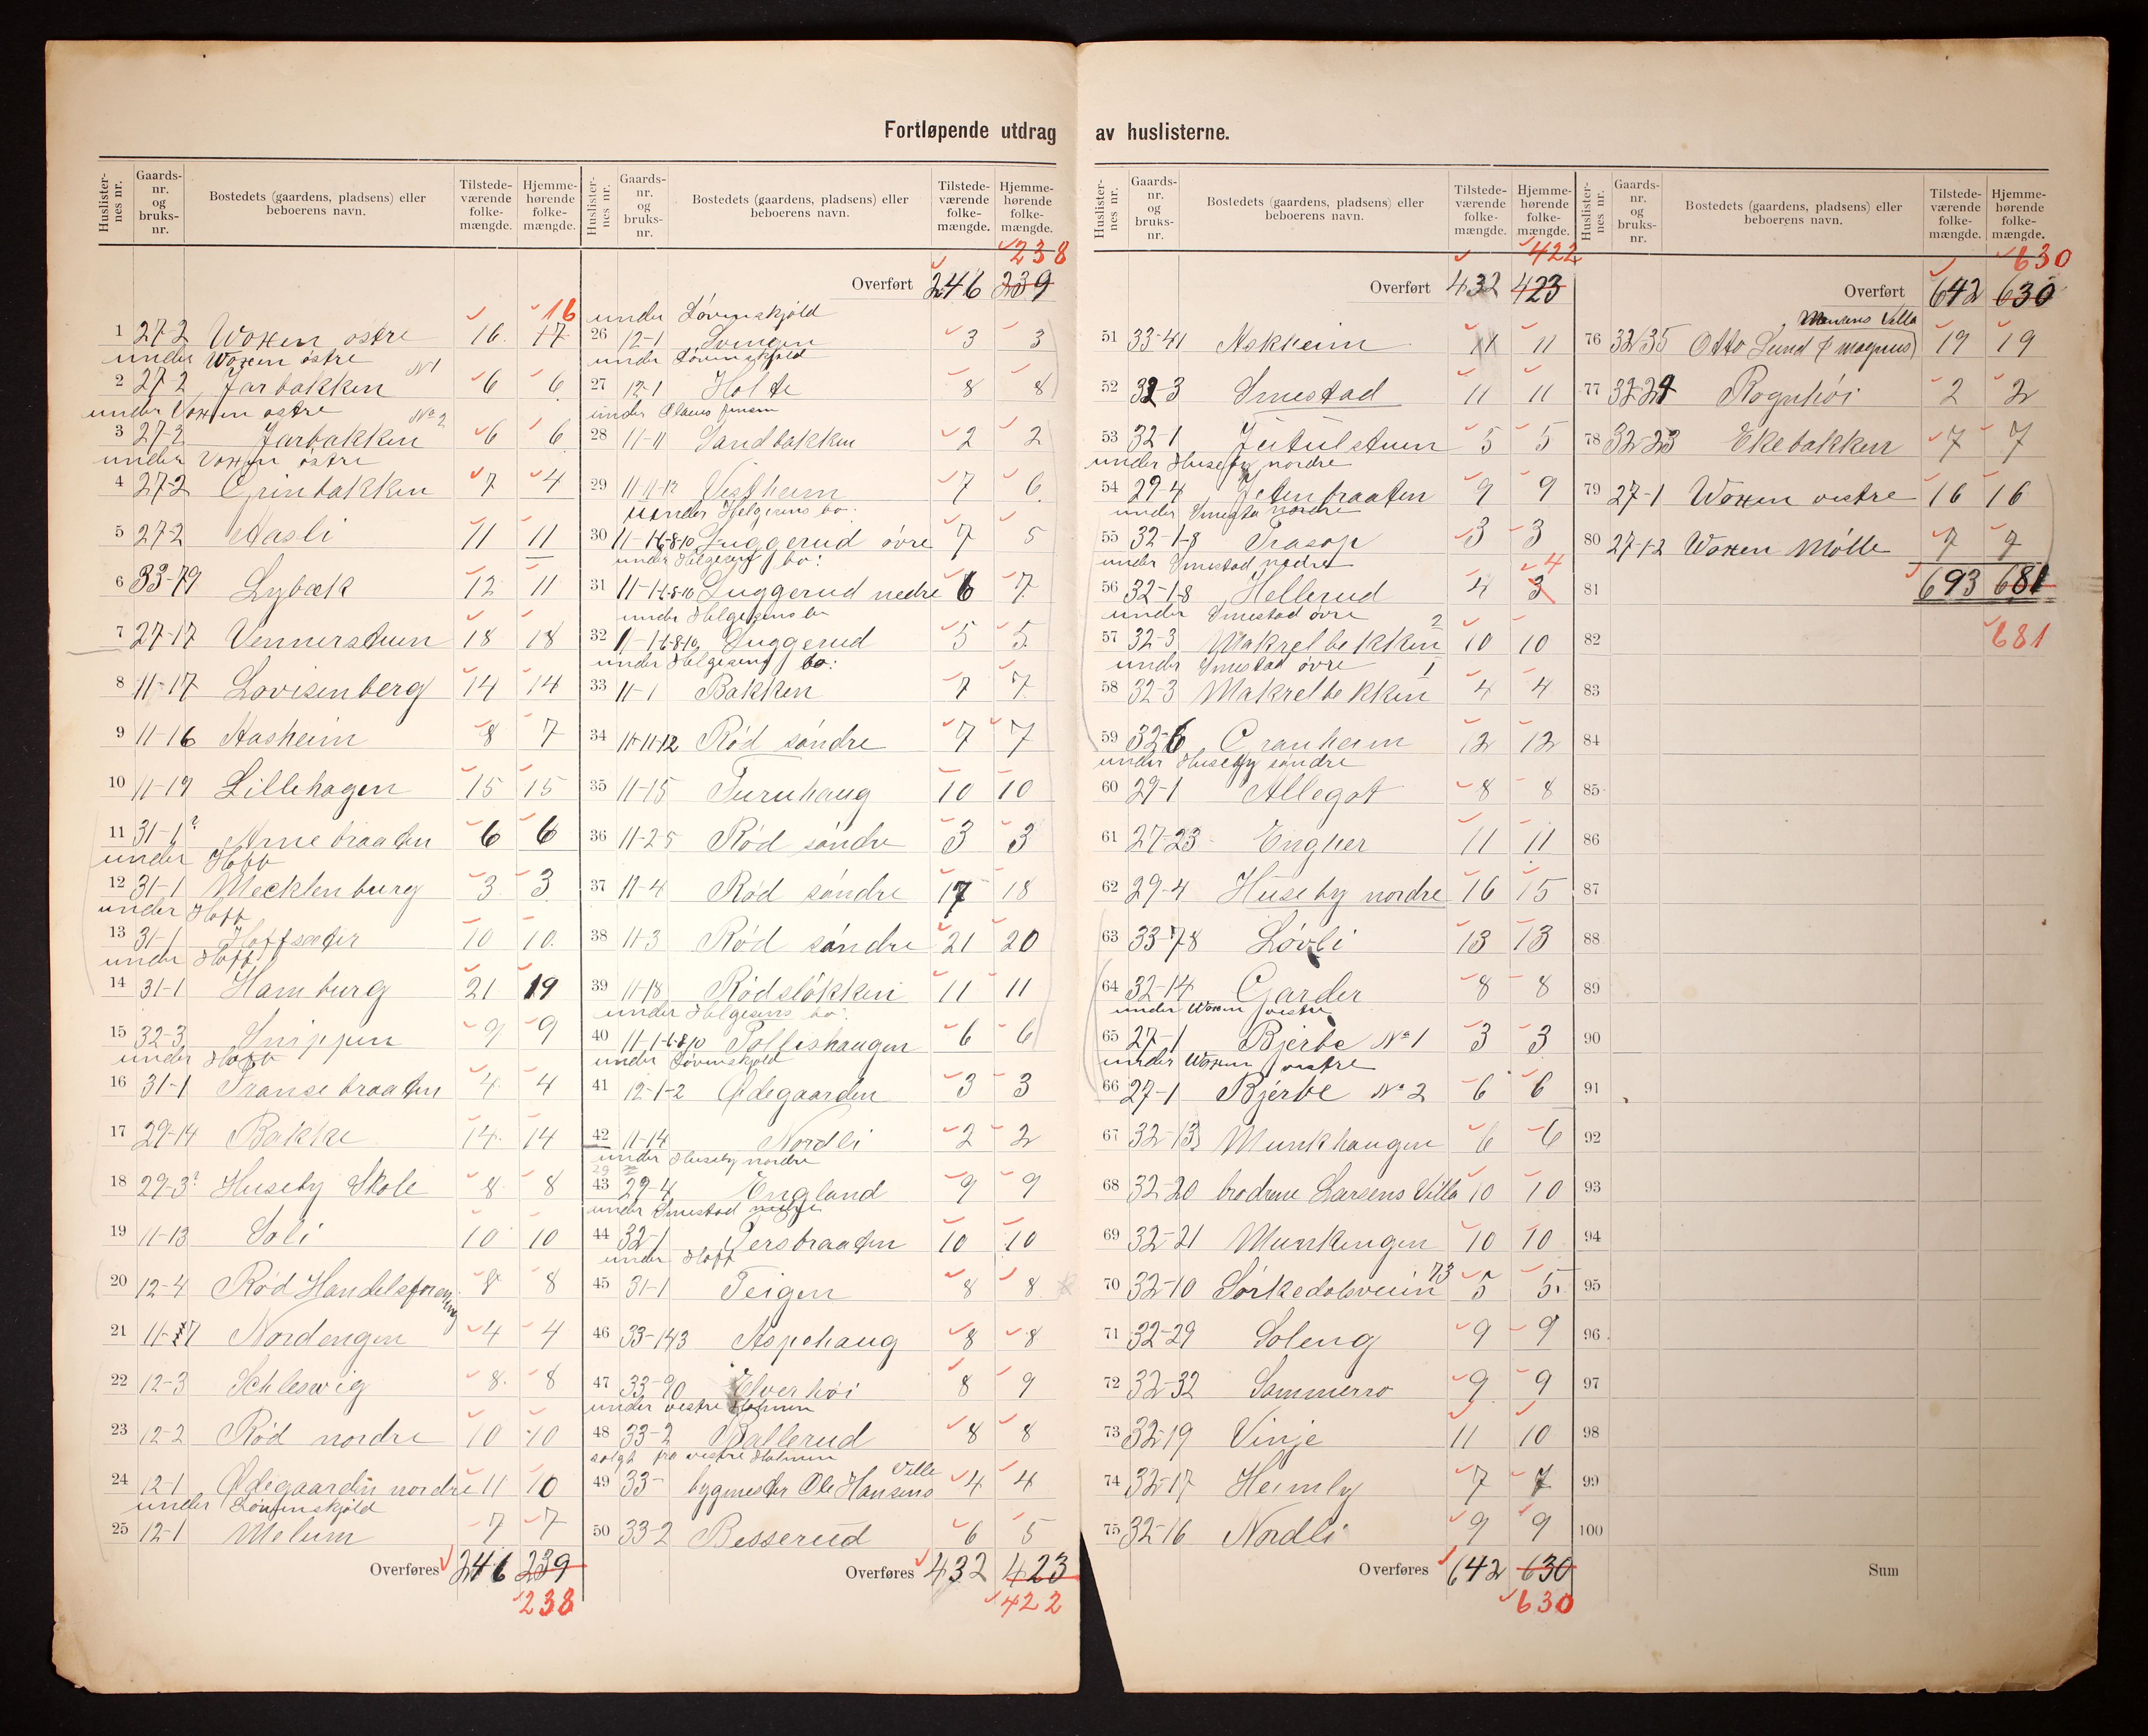 Fortløpende utdrag av huslisterne.
Huslister-nes nr. Gaards-nr. og bruks-nr. Bostedets (gaardens, pladsens) eller beboerens navn. Tilstede-værende folke-mængde. Hjemme-hørende folke-mængde.
16
1 27-2 Woxen østre 16 17
under Woxen østre No 1
2 27-2 Jarbakken 6 6
under Voxen østre No 2
3 27-2 Jarbakken 6 6
under Voxen østre
4 27-2 Grinbakken 7 4
5 27-2 Aasli 11 11
6 33-79 Lybæk 12 11
7 27-17 Vennerstuen 18 18
8 11-17 Lovisenberg 14 14
9 11-16 Aasheim 8 7
10 11-19 Lillehagen 15 15
11 31-1? Arnebraaten 6 6
under Hoff
12 31-1 Mecklenburg 3 3
under Hoff
13 31-1 Hoffsæter 10 10
under Hoff
14 31-1 Hamburg 21 19
15 32-3 Snippen 9 9
under Hoff
16 31-1 Transebraaten 4 4
17 29-14 Bakke 14 14
18 29-3? Huseby Skole 8 8
19 11-13 Soli 10 10
20 12-4 Rød Handelsforening 8 8
21 11-7 Nordengen 4 4
22 12-3 Schleswig 8 8
23 12-2 Rød nordre 10 10
24 12-1 Ødegaarden nordre 11 10
under Løvenskjold
25 12-1 Melum 7 7
Overføres 246 239
238
Huslister-nes nr. Gaards-nr. og bruks-nr. Bostedets (gaardens, pladsens) eller beboerens navn. Tilstede-værende folke-mængde. Hjemme-hørende folke-mængde.
238
Overført 246 239
under Løvenskjold
26 12-1 Svingen 3 3
under Løvenskjold
27 12-1 Holte 8 8
under Olaus Jensen
28 11-11 Sandbakken 2 2
29 11-11-12 Vestheim 7 6
under Helgesens bo.
30 11-1-6-8-10 Luggerud øvre 7 5
under Helgesens bo:
31 11-1-6-8-10 Luggerud nedre 6 7
under Helgesens bo
32 11-1-6-8-10 Luggerud 5 5
under Helgesens bo:
33 11-1 Bakken 7 7
34 11-11-12 Rød søndre 7 7
35 11-15 Furuhaug 10 10
36 11-25 Rød søndre 3 3
37 11-4 Rød søndre 17 18
38 11-3 Rød søndre 21 20
39 11-18 Rødsløkken 11 11
under Helgesens bo:
40 11-1-6-8-10 Pollishaugen 6 6
under Løvenskjold
41 12-1-2 Ødegaarden 3 3
42 11-14 Nordli 2 2
under Huseby nordre
43 29-4 England 9 9
under Smestad nedre
44 32-1 Persbraaten 10 10
under Hoff
45 31-1 Teigen 8 8
46 33-143 Aspehaug 8 8
47 33-90 Elverhøi 8 9
under vestre Holmen
48 33-2 Ballerud 8 8
solgt fra vestre Holmen
49 33- bygmester Ole Hansens Villa 4 4
50 33-2 Besserud 6 5
Overføres 432 423
422
Huslister-nes nr. Gaards-nr. og bruks-nr. Bostedets (gaardens, pladsens) eller beboerens navn. Tilstede-værende folke-mængde. Hjemme-hørende folke-mængde.
422
Overført 432 423
51 33-41 Askheim 11 11
52 32-3 Smestad 11 11
53 32-1 Jutulstuen 5 5
under Huseby nordre
54 29-4 Jetenbraaten 9 9
under Smestad nordre
55 32-1-8 Trasop 3 3
under Smestad nedre 4
56 32-1-8 Hellerud 4 3
under Smestad øvre 2
57 32-3 Makrelbekken 10 10
under Smestad øvre 1
58 32-3 Makrelbekken 4 4
59 32-6 Granheim 12 12
under Huseby søndre
60 29-1 Allegot 8 8
61 27-23 Engher 11 11
62 29-4 Huseby nordre 16 15
63 33-78 Løvli 13 13
64 32-14 Garder 8 8
under Woxen vestre
65 27-1 Bjerke No 1 3 3
under Woxen vestre
66 27-1 Bjerke No 2 6 6
67 32-13 Munkhaugen 6 6
68 32-20 brødrene Larsens Villa 10 10
69 32-21 Munkengen 10 10
70 32-10 Sørkedalsveien 73 5 5
71 32-29 Soleng 9 9
72 32-32 Sommerro 9 9
73 32-19 Vinje 11 10
74 32-17 Heimly 7 7
75 32-16 Nordli 9 9
Overføres 642 630
630
Huslister-nes nr. Gaards-nr. og bruks-nr. Bostedets (gaardens, pladsens) eller beboerens navn. Tilstede-værende folke-mængde. Hjemme-hørende folke-mængde.
630
Overført 642 630
Villa
76 32/35 Otto Lund 19 19
77 32-24 Rognhøi 2 2
78 32-23 Ekebakken 7 7
79 27-1 Woxen vestre 16 16
80 27-12 Woxen Mølle 7 7
81 693 681
82 681
83
84
85
86
87
88
89
90
91
92
93
94
95
96
97
98
99
100
Sum